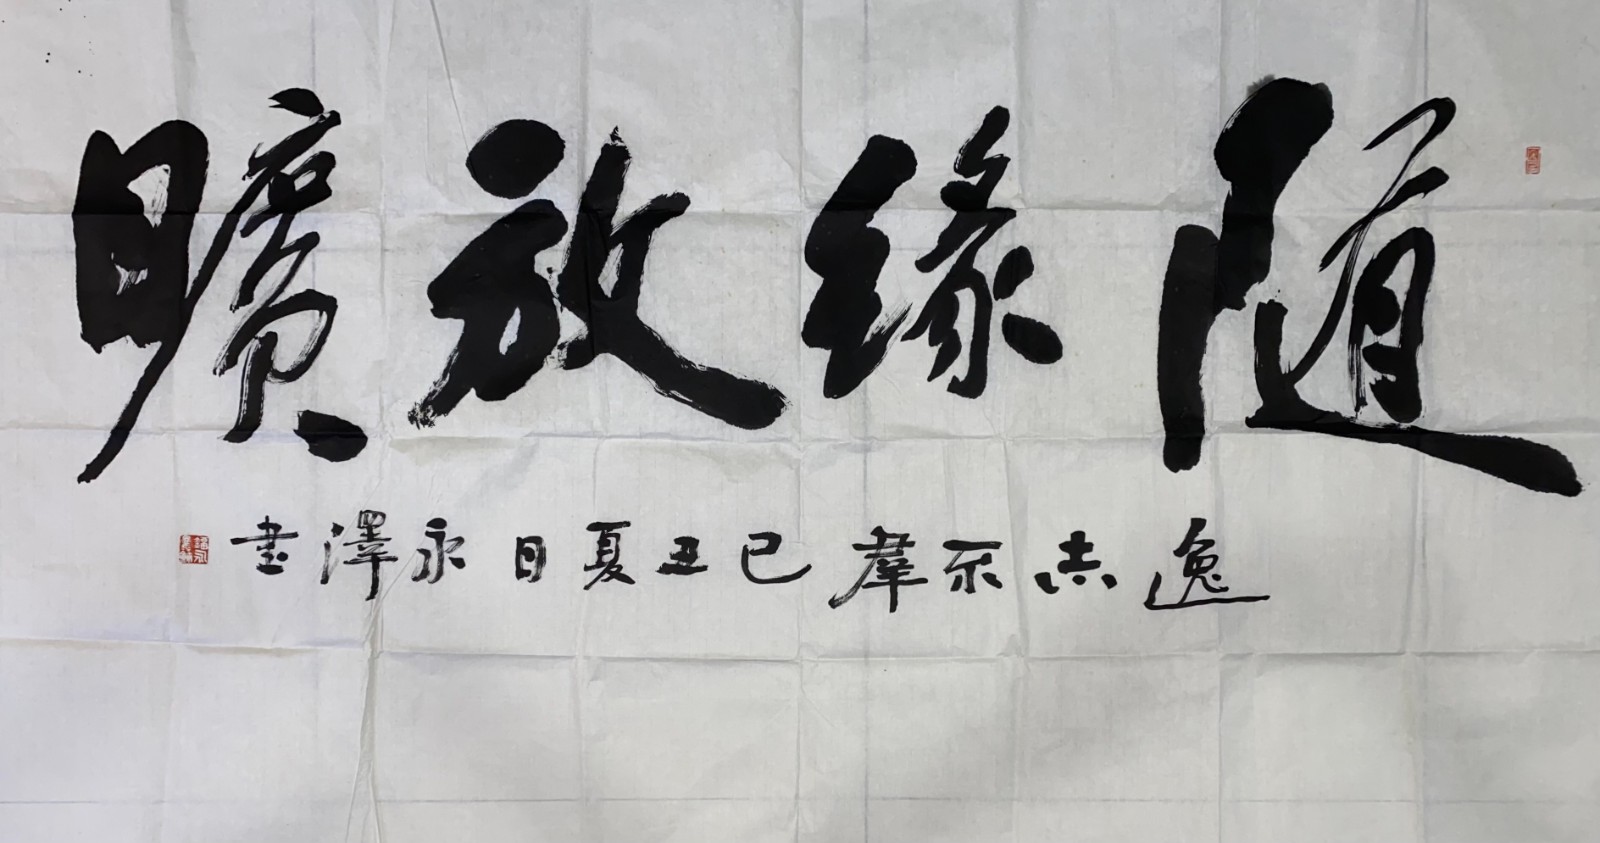 隨緣放曠
逸志不群己丑夏日永澤書